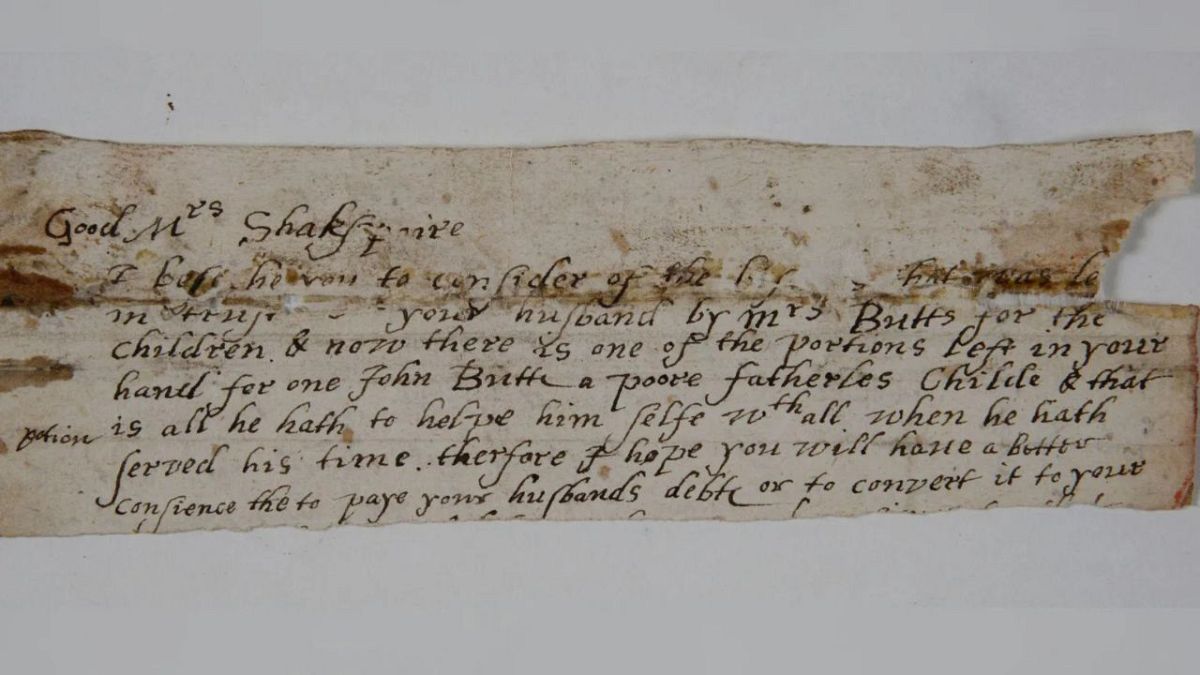 Good Mrs Shakspaire
I you to consider of the that was
in your husband by Mrs Butts for the
Children & now there is one of the portions left in your
hand for one John Butte a poore fatherles Childe & that
is all he hath to helpe him selfe wth all when he hath
served his time therfore I hope you will have a better
Consience the to paye your husbands debte or to convert it to your